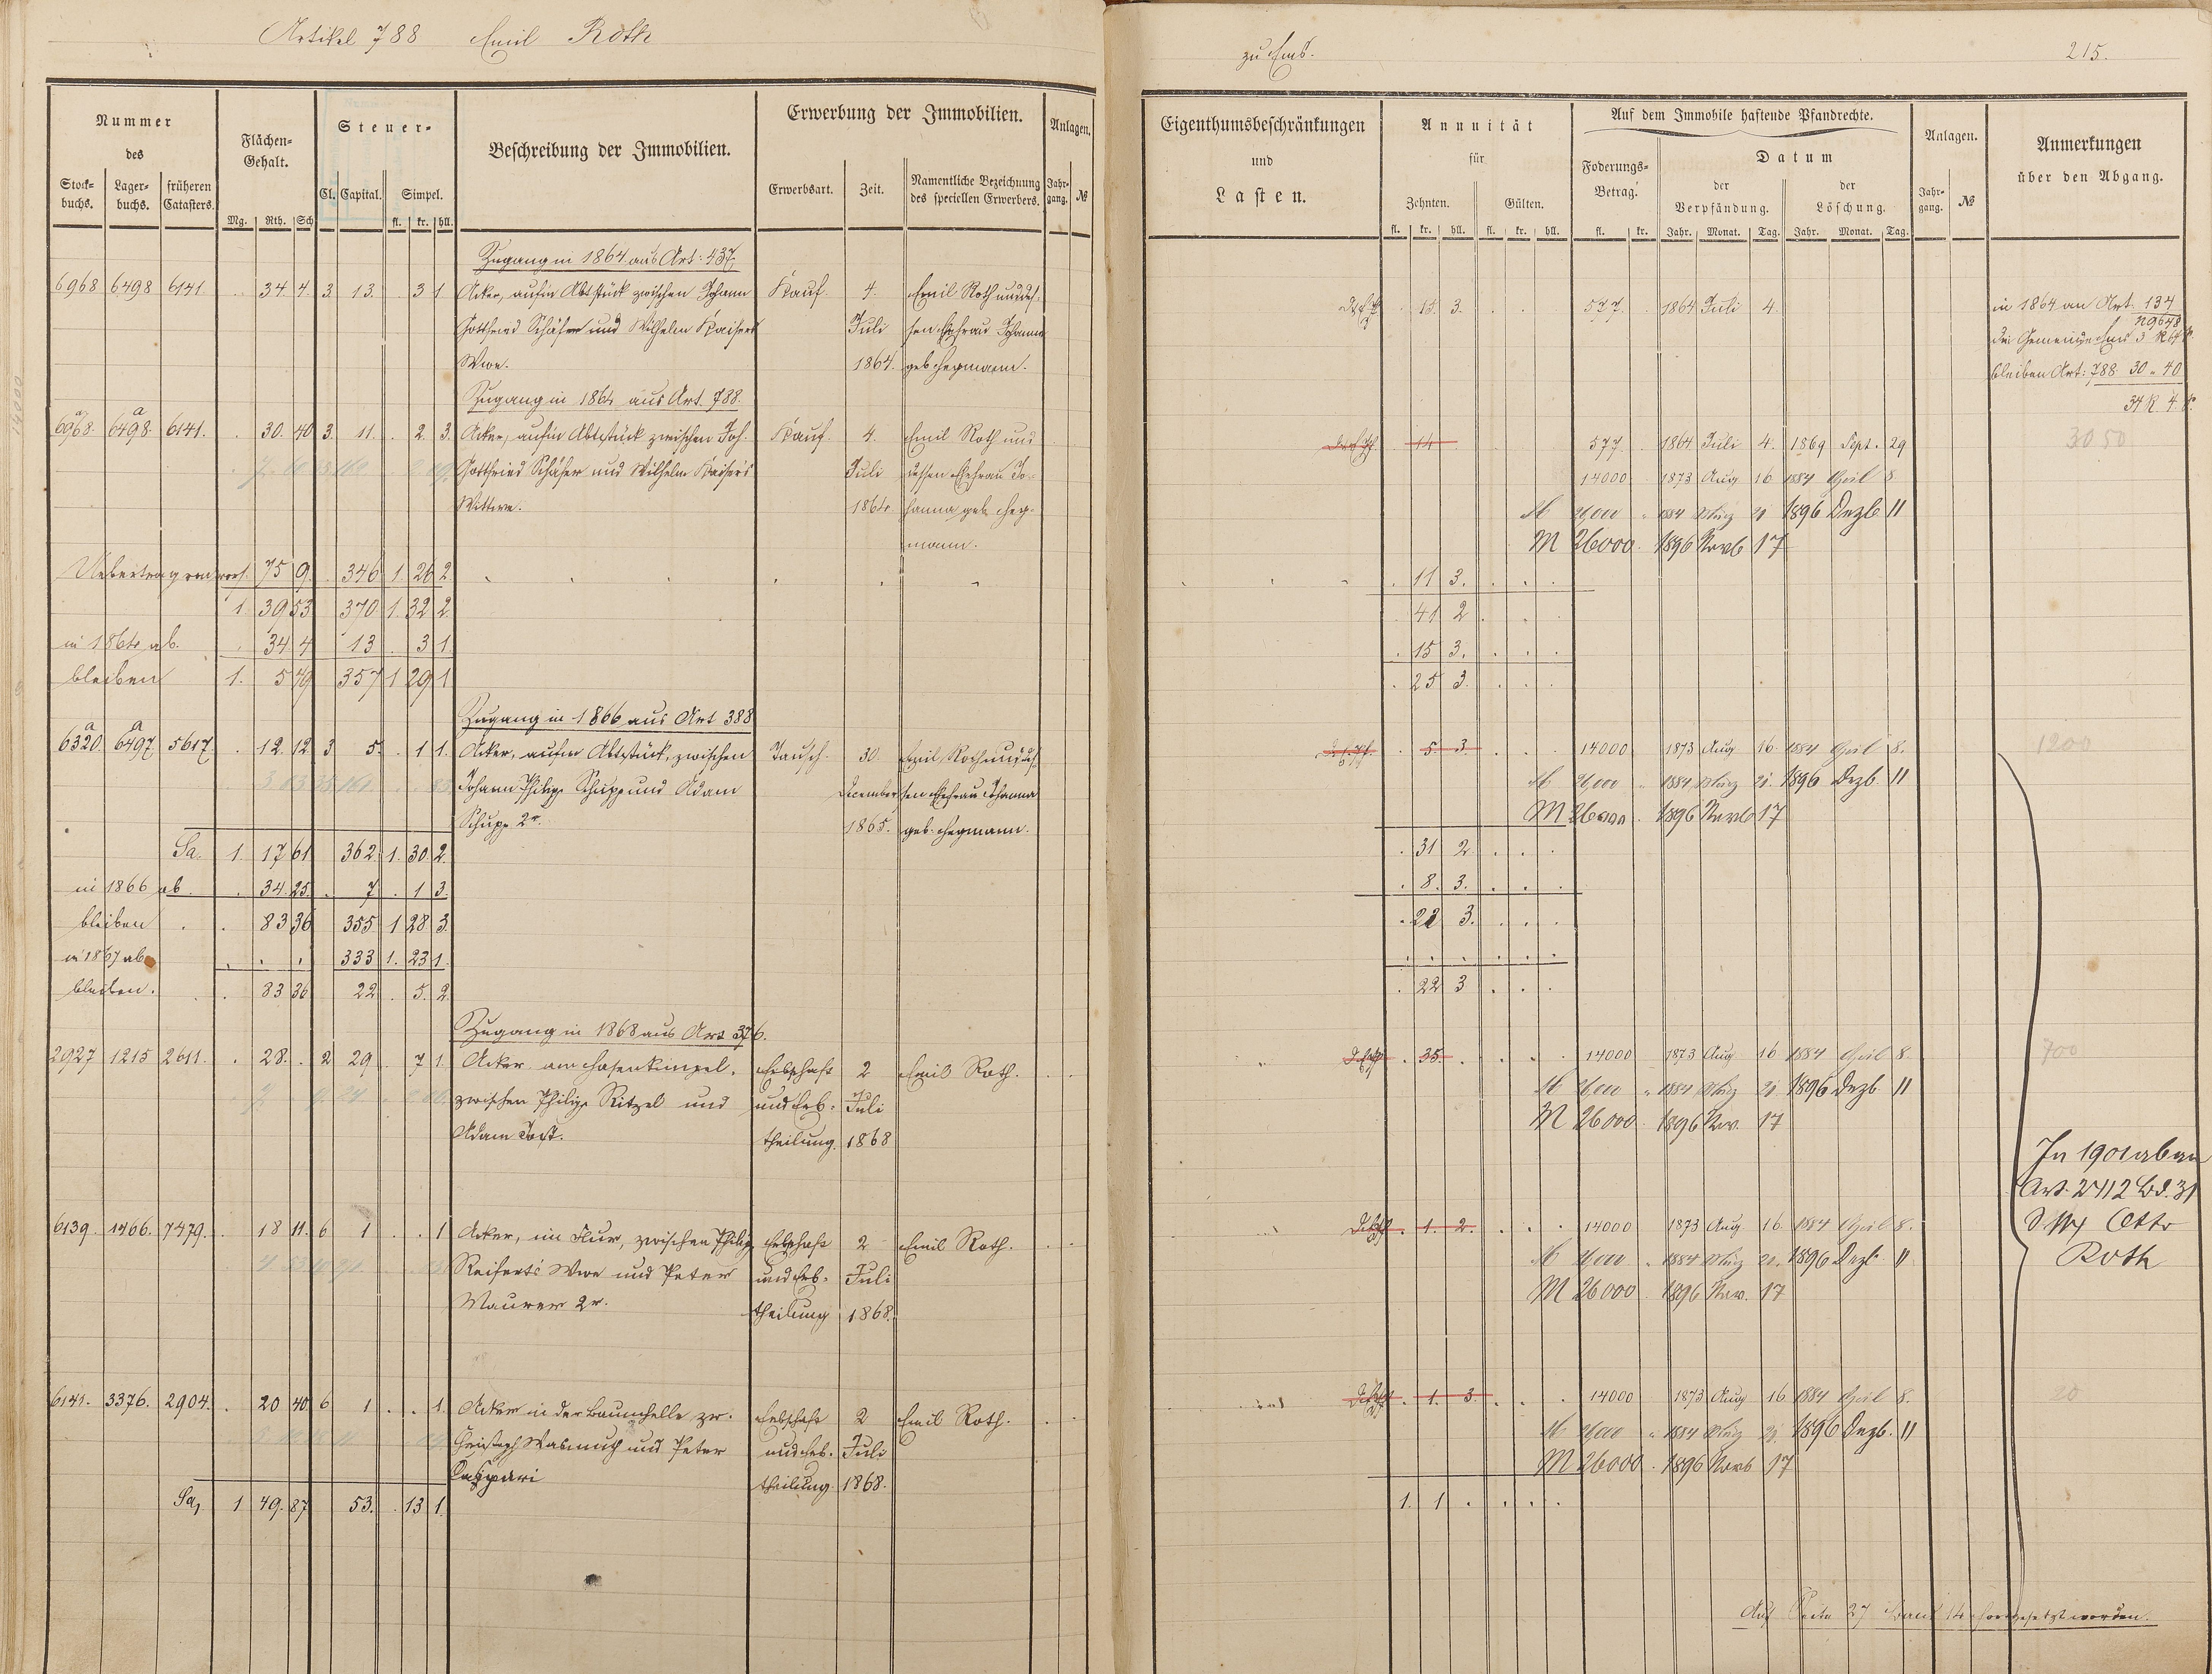 Artikel 788 Emil Roth
zu Ems. 215.
Nummer des
Stock= buchs. Lager= buchs. früheren Catasters.
Flächen= Gehalt.
Mg. Rth. Sch
Steuer=
Cl. Capital. Simpel.
fl. kr. hll.
Beschreibung der Immobilien.
Erwerbung der Immobilien.
Erwerbsart. Zeit. Namentliche Bezeichnung des speciellen Erwerbers.
Anlagen.
Jahr= gang. №
Eigenthumsbeschränkungen
und
Lasten.
Annuität
für
Zehnten. Gülten.
fl. kr. hll. fl. kr. hll.
Auf dem Immobile haftende Pfandrechte.
Foderungs= Betrag.
fl. kr.
Datum
der Verpfändung. der Löschung.
Jahr. Monat. Tag. Jahr. Monat. Tag.
Anlagen.
Jahr= gang. №
Anmerkungen
über den Abgang.
Zugang in 1864 aus Art: 437.
6968 6498 6141 . 34 4 3 13. . 3 1 Acker, aufm Abtstück zwischen Johann Kauf. 4. Emil Roth und des= 15 3. 577. 1864 Juli 4. in 1864 an Art. 134
Gottfried Schäfer und Wilhelm Kaisers Juli sen Ehefrau Johanna
Wwe. 1864. geb. Hegmann. bleiben Art: 788. 30 " 40
34 R. 4
Zugang in 1864 aus Art. 788.
6968.a 6498.a 6141. . 30. 40 3 11. . 2. 3. Acker, aufm Abtstück zwischen Joh. Kauf. 4. Emil Roth und 14 577. 1864 Juli 4. 1869 Sept. 29 3050
Gottfried Schäfer und Wilhelm Kaiser's Juli dessen Ehefrau Jo= 14000 1873 Aug 16 1884 April 8
Wittwe. 1864. hanna geb. Heg= M 26,000 " 1884 März 20 1896 Dezb. 11
mann. M 26000. 1896 Novb 17
Uebertrag von vorst. 75 9. 346 1. 26 2. . 11 3.
1 39 53 370 1. 32 2 41 2
in 1864 ab. . 34 4 13 . 3 1 . 15 3.
bleiben 1. 5 49 357 1 29 1 . 25 3.
Zugang in 1866 aus Art 388
6320.a 6497.a 5617. . 12. 12 3 5. . 1 1. Acker, aufm Abtstück, zwischen Tausch. 30. Emil Roth und des= . 5 3 14000 1873 Aug 16. 1884 April 8. 1200
Johann Philipp Schupp und Adam December sen Ehefrau Johanna M 26,000 " 1884 März 20. 1896 Dezb. 11
Schupp 2r. 1865. geb. Hegmann. M 26000. 1896 Novb 17
Sa. 1. 17 61 362. 1. 30. 2. . 31 2
in 1866 ab. . 34. 25. 7 . 1 3. . 8. 3.
bleiben . . 83 36 355 1 28 3. . 22 3.
in 1867 ab . . . 333 1. 23 1.
bleiben. . 83 36 22 . 5. 2. . 22 3
Zugang in 1868 aus Art 376.
2927 1215 2611. . 28. . 2 29 . 7 1. Acker am Hasenkümpel, Erbschaft 2 Emil Roth. . 35. 14000 1873 Aug 16 1884 April 8. 700
zwischen Philipp Ritzel und und Erb= Juli M 26,000 " 1884 März 20 1896 Dezb. 11
Adam Jost. theilung. 1868 M 26000. 1896 Nov. 17
In 1901 ab an
Art. 2412 Bd. 31
Otto
Roth
6139. 1466. 7479. . 18 11. 6 1 . . 1 Acker, im Flur, zwischen Philip Erbschaft 2 Emil Roth. . 1. 2. 14000 1873 Aug 16 1884 April 8.
Reiferts Wwe und Peter und Erb= Juli M 26,000 " 1884 März 20. 1896 Dezb. 11
Maurer 2r. theilung 1868. M 26000. 1896 Nov. 17
6141. 3376. 2904. . 20 40 6 1 . . 1. Acker in der Baumhelle zw. Erbschaft 2 Emil Roth. . 1. 3. 14000 1873 Aug 16 1884 April 8. 20
Christoph Wasmuth und Peter und Erb= Juli M 26,000 " 1884 März 20. 1896 Dezb. 11
Caspari theilung. 1868. M 26000. 1896 Novb 17
Sa, 1 49. 87 53. . 13 1. 1. 1 .
Auf Seite 27 Band 14 fortgesetzt worden.